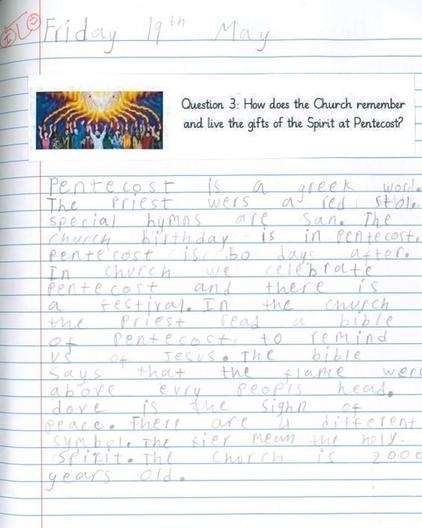 Friday 19th May
Question 3: How does the Church remember
and live the gifts of the Spirit at Pentecost?
Pentecost is a greek word.
The Priest wers a red stole.
special hymns are san. The
church birthday is in Pentecost.
Pentecost is 50 days after.
In church we celebrate
Pentecost and there is
a festival. In the church
the Priest read a bible
of Pentecost. to remind
us of Jesus. The bible
Says that the flame wers
above evry peopls head.
dove is the sighn of
peace. There are 4 different
symbol. The fier mean the holy-
Spirit. The Church is 2000
years old.